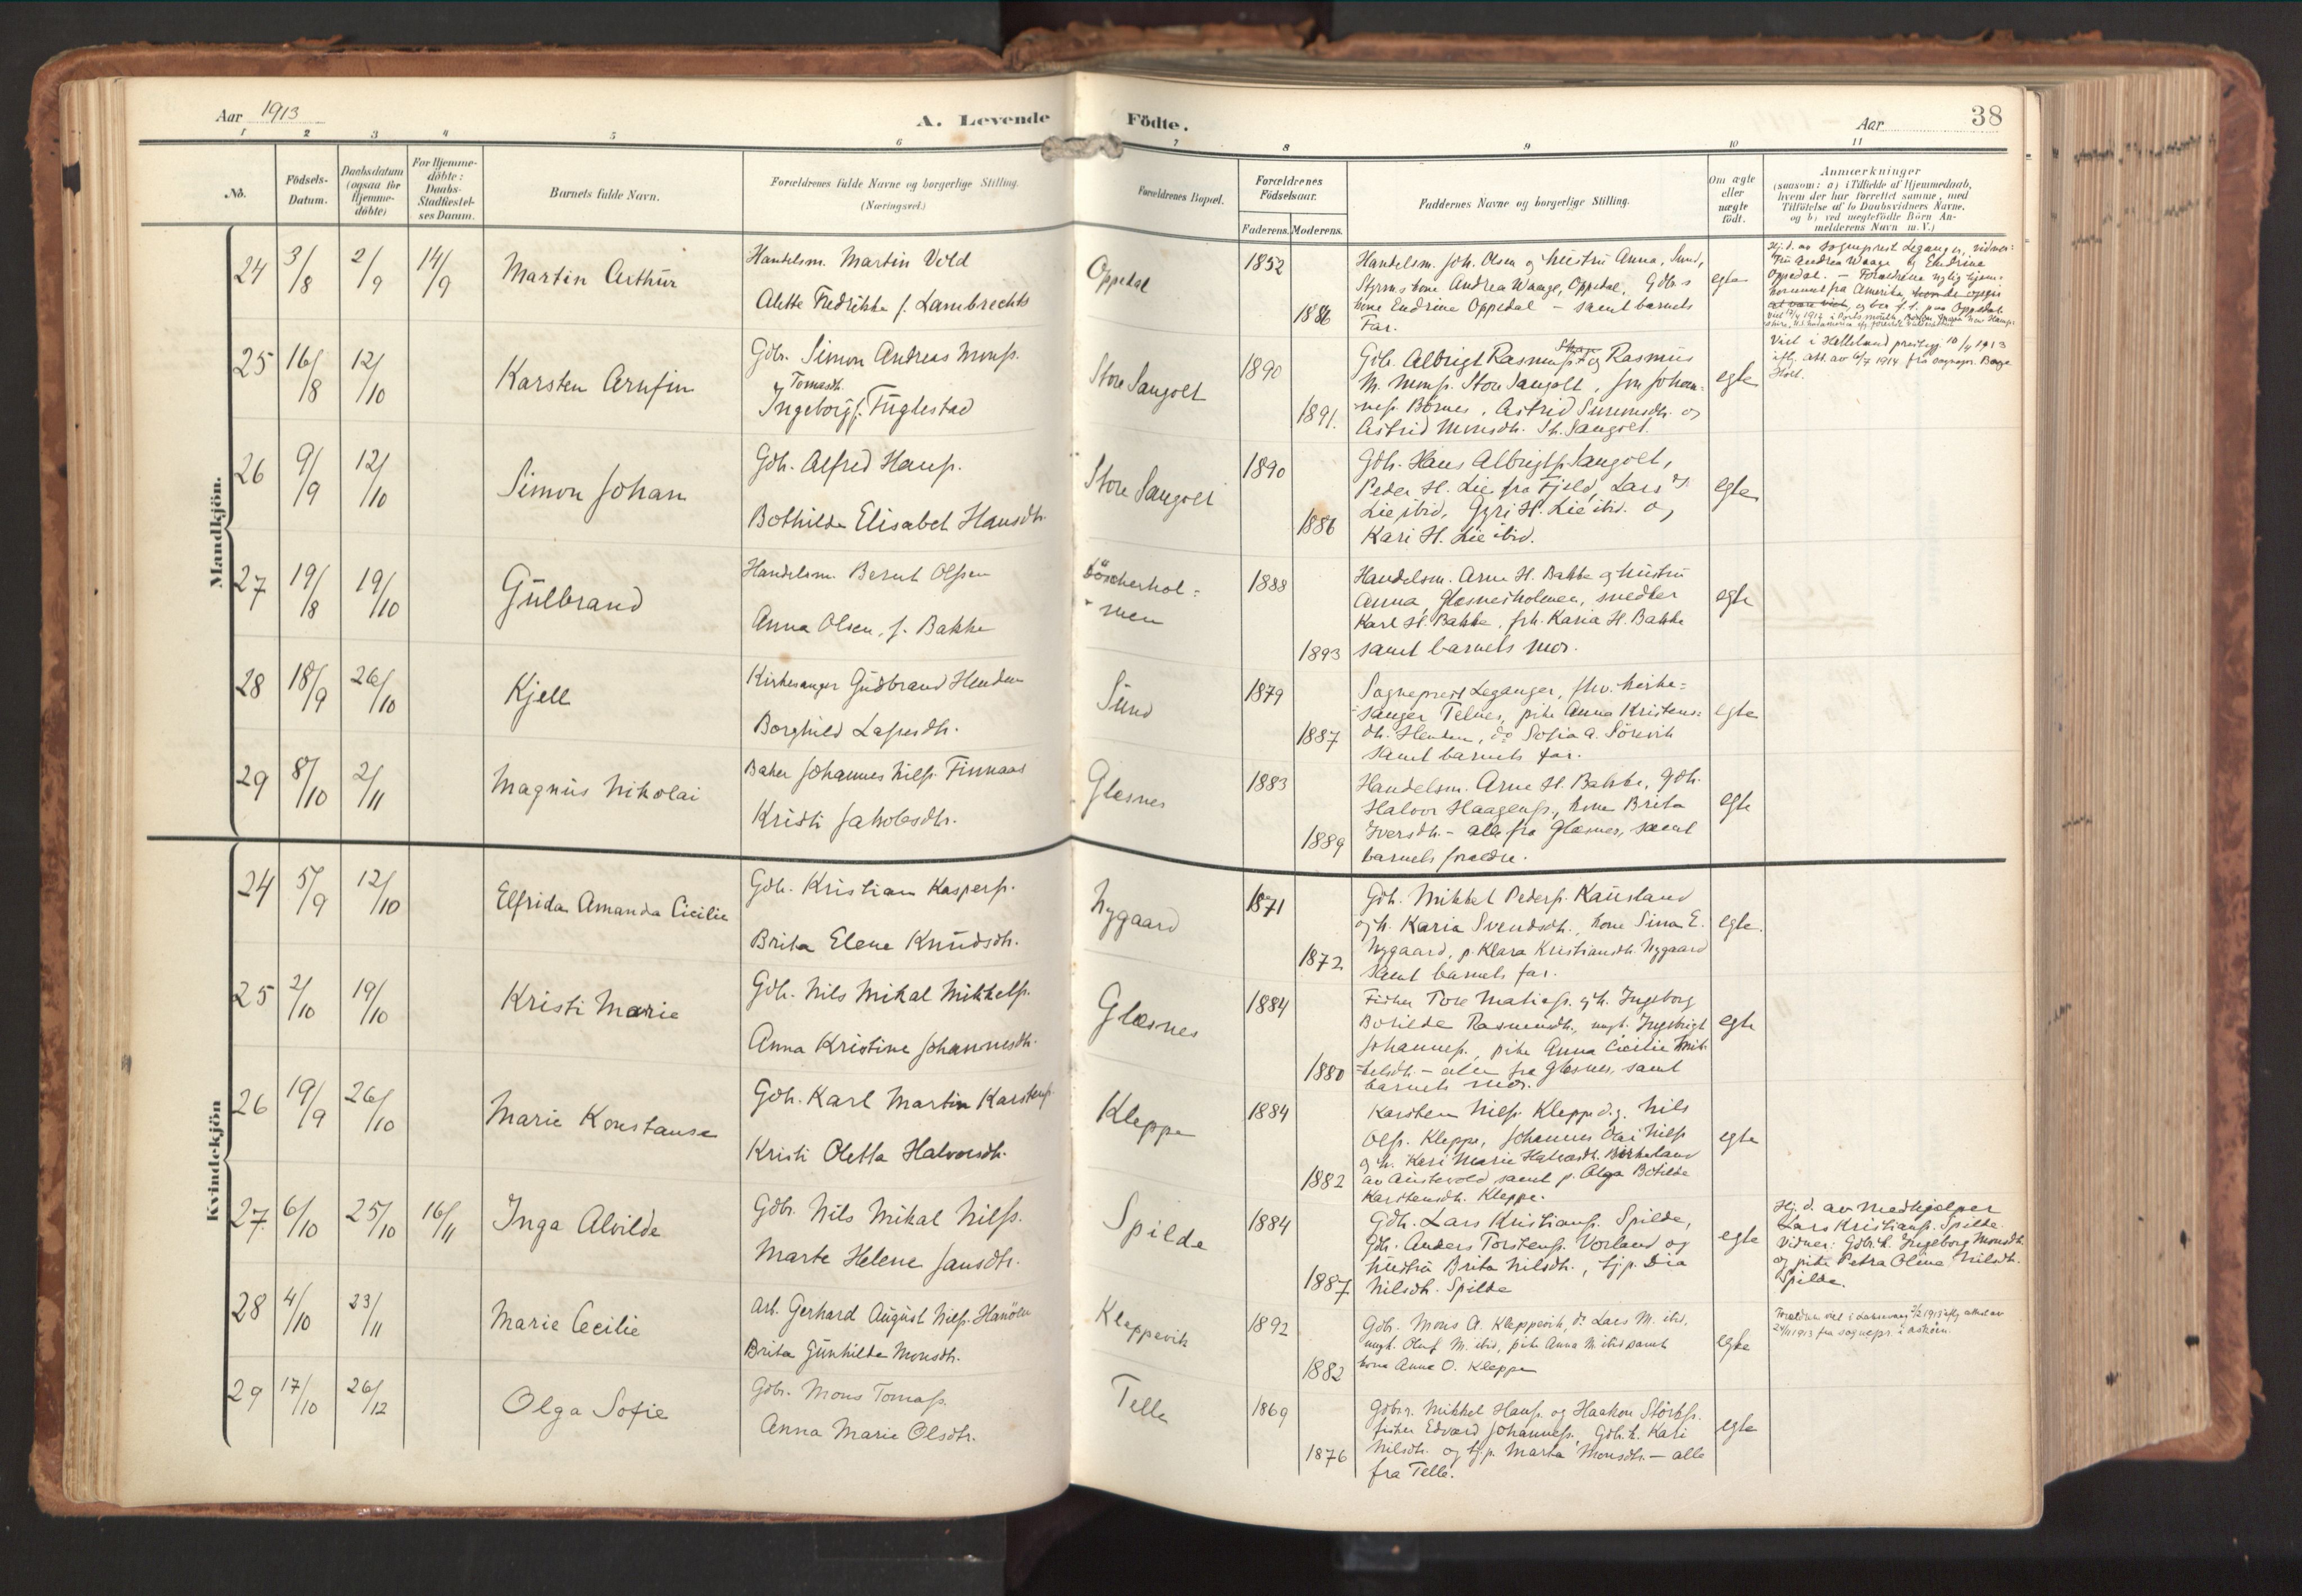 Aar 1913
A. Levende Födte.
Aar
38
1 2 3 4 5 6 7 8 9 10 11
No.
Födsels-Datum.
Daabsdatum (ogsaa for Hjemme-döbte)
For Hjemme-döbte: Daabs-Stadfæstel-ses Datum.
Barnets fulde Navn.
Forældrenes fulde Navne og borgerlige Stilling. (Næringsvei.)
Forældrenes Bopæl.
Forældrenes Födselsaar.
Faderens. Moderens.
Faddernes Navne og borgerlige Stilling.
Om ægte eller uægte födt.
Anmærkninger
(saasom: a) i Tilfælde af Hjemmedaab,
hvem der har forrettet samme, med
Tilföielse af to Daabsvidners Navne,
og b) ved uegtefödte Börn An-
melderens Navn m. V.)
Mandkjön.
24 3/8 2/9 14/9 Martin Arthur
Handelsm. Martin Vold
Alette Fredrikke f. Lambrechts
Oppedal
1852
1886
Handelsm. Joh. Olsen og hustru Anna, Sund,
Styrms kone Andrea Waage, Oppedal, Gdbr.s
kone Endrine Oppedal – samt barnets
Far.
egte
Hj. d. av Sogneprest Leganger, vidner:
Fru Andrea Waage og Endrine
Oppedal. – Forældrene nylig hjem-
kommet fra Amerika,
25 16/8 12/10 Karsten Arnfin
Gdbr. Simon Andreas Monss.
Ingeborg Tomasdt. f. Fuglestad
Store Sangolt
1890
1891.
Gdb. Albrigt Rasmuss. og Rasmus
M. Monss. Store Sangolt, Johan-
ness. Börnes, Astrid Simensdtr. og
Astrid Monsdtr. St. Sangolt.
egte
Viet i Helleland prestegj. 10/4 1913
iflg. att. av 6/7 1914 fra sognepr.
26 9/9 12/10 Simon Johan
Gdb. Alfred Hanss.
Bothilde Elisabet Hansdtr.
Store Sangolt
1890
1886
Gdb. Hans Albrigts. Sangolt,
Peder H. Lie fra Fjeld, Lars
Lie ibid, Gyri H. Lie ibid. og
Kari H. Lie ibid.
egte
27 19/8 19/10 Gulbrand
Handelsm. Bernt Olsen
Anna Olsen, f. Bakke
1888
1893
Handelsm. Arne H. Bakke og hustru
Anna, Glesnesholmen, snedker
Karl H. Bakke, frk. Karia H. Bakke
samt barnets mor.
egte
28 18/9 26/10 Kjell
Kirkesanger Gudbrand Henden
Borghild Lassesdtr.
Sund
1879
1887
Sogneprest Leganger, fhv. kirke-
sanger Telnes, pike Anna Kristens-
dtr. Henden, do Sofia A. Sörevik
samt barnets far.
egte
29 8/10 2/11 Magnus Nikolai
Baker Johannes Nilss. Finnaas
Kristi Jakobsdtr.
Glesnes
1883
1889
Handelsm. Arne H. Bakke, Gdb.
Halvor Haagens., kone Brita
Iversdtr. – alle fra Glesnes, samt
barnets foreldre.
egte
Kvindekjön
24 5/9 12/10 Elfrida Amanda Cicilie
Gdb. Kristian Kaspers.
Brita Elene Knudsdtr.
Nygaard
1871
1872
Gdb. Mikkel Peders. Kausland
og h. Karia Svendsdtr., kone Sina E.
Nygaard, p. Klara Kristiansdtr. Nygaard
samt barnets far.
egte.
25 2/10 19/10 Kristi Marie
Gdb. Nils Mikal Mikkels.
Anna Kristine Johannesdtr.
Glesnes
1884
1880
Fisker Tore Matiass. og h. Ingeborg
Botilde Rasmusdtr., ungk. Ingebrigt
Johanness., pike Anna Cicilie Mik-
kelsdtr. – alle fra Glesnes, samt
barnets mor.
egte
26 19/9 26/10 Marie Konstanse
Gdb. Karl Martin Karstens.
Kristi Oletta Halvorsdtr.
Kleppe
1884
1882
Karsten Nilss. Kleppe og Nils
Olss. Kleppe, Johannes Olai Nilss
og h. Kari Marie Birkeland
av Austevold samt p. Olga Botilde
Karstensdtr. Kleppe.
egte
27. 6/10 25/10 16/11 Inga Alvilde
Gdbr. Nils Mikal Nilss.
Marte Helene Jansdtr.
Spilde
1884
1887
Gdb. Lars Kristians. Spilde,
Gdb. Anders Torstens. Vorland og
hustru Brita Nilsdtr., tj.p. Dia
Nilsdtr. Spilde
egte
Hj. d. av Medhjælper
Lars Kristians. Spilde.
Vidner: Gdb.k. Ingeborg Monsdtr.
og pike Petra Oline Nilsdtr.
Spilde.
28 4/10 23/11 Marie Cecilie
Arb. Gerhard August Nilss. Hanöen
Brita Gunhilde Monsdtr.
Kleppevik
1892
1882
Gdb. Mons A. Kleppevik, do Lars M. ibd.
ungk. Oluf M. ibid, pike Anna M. ibid samt
kone Anna O. Kleppe
egte
29 17/10 26/12 Olga Sofie
Gdbr. Mons Tomass.
Anna Marie Olsdtr.
Telle
1869
1876
Gdbr. Mikkel Hanss. og Haakon
fisker Edvard Johanness., Gdb.k. Kari
Nilsdtr. og tj.p. Marta Monsdtr. – alle
fra Telle.
egte